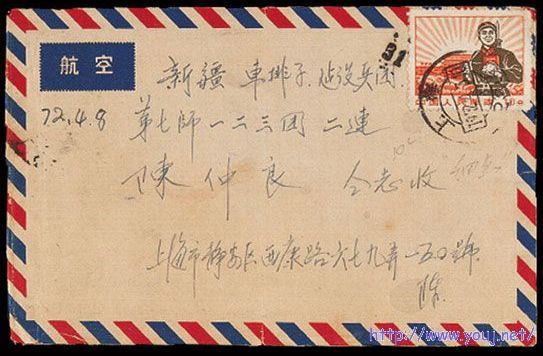 航空
31
新疆 車排子 建设兵团
72.4.8
第七師一二三团二連
陳仲良 仝志收
上海市静安区西康路六七九弄一五〇號
陈
上海
http://www.youj.net/